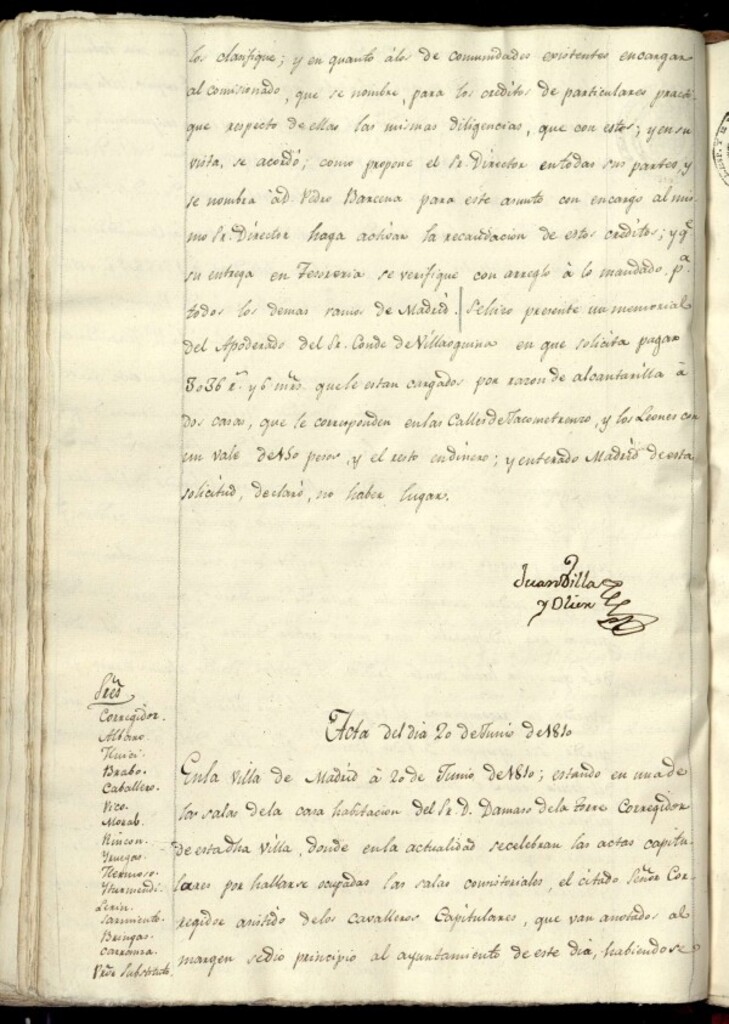 los clasifique; y en quanto álos de comunidades existentes encargar
al comisionado, que se nombre, para los creditos de particulares practi-
que respecto de ellas las mismas diligencias, que con estos; y en su
vista, se acordó; como propone el Sr. Director en todas sus partes, y
se nombra àD. Pedro Barcena para este asunto con encargo al mis-
mo Sr. Director haga activar la recaudacion de estos creditos; y qe.
su entrega en Tesoreria se verifique con arreglo à lo mandado pa.
todos los demas ramos de Madrid. | Sehizo presente un memorial
del Apoderado del Sr. Conde de Villaoquina en que solicita pagar
3o36 rs. y 6 mrs. que le estan cargados por razon de alcantarilla à
dos casas, que le corresponden en las Calles de Jacometrenzo, y los Leones con
un vale de 150 pesos, y el resto en dinero; y enterado Madrid de esta
solicitud, declaró, no haber lugar.
Juan Villa
y Olier
Sres.
Corregidor.
Albaro
Huici
Brabo.
Caballero.
Vico.
Moral.
Rincon.
Yruegas.
Hermoso.
Yturmendi.
Lerin.
Sarmiento.
Bringas.
Carranza.
Prór. Substituto.
Acta del dia 20 de Junio de 1810
En la Villa de Madrid à 20 de Junio de 1810; estando en una de
las salas de la casa habitacion del Sr. D. Damaso de la Torre Corregidor
de esta dha villa, donde en la actualidad se celebran las actas capitu-
lares por hallarse ocupadas las salas consistoriales, el citado Señor Cor-
regidor asistido de los cavalleros Capitulares, que van anotados al
margen se dio principio al ayuntamiento de este dia, habiendose